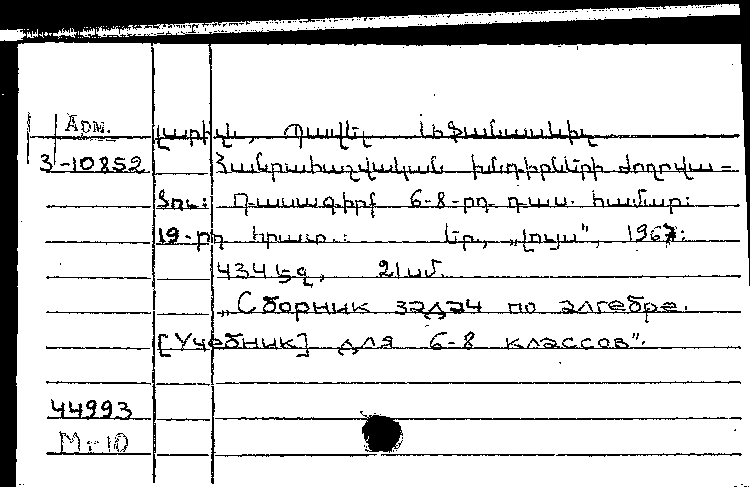 Арм.
Լարիչև, Պավել Աֆանասևիչ
3-10852 Հանրահաշվական խնդիրների ժողովա-
ծու: Դասագիրք 6-8-րդ դաս. համար:
19-րդ հրատ.: Եր., „Լույս", 1967:
434 էջ, 21 սմ.
„Сборник задач по алгебре.
[Учебник] для 6-8 классов".
44993